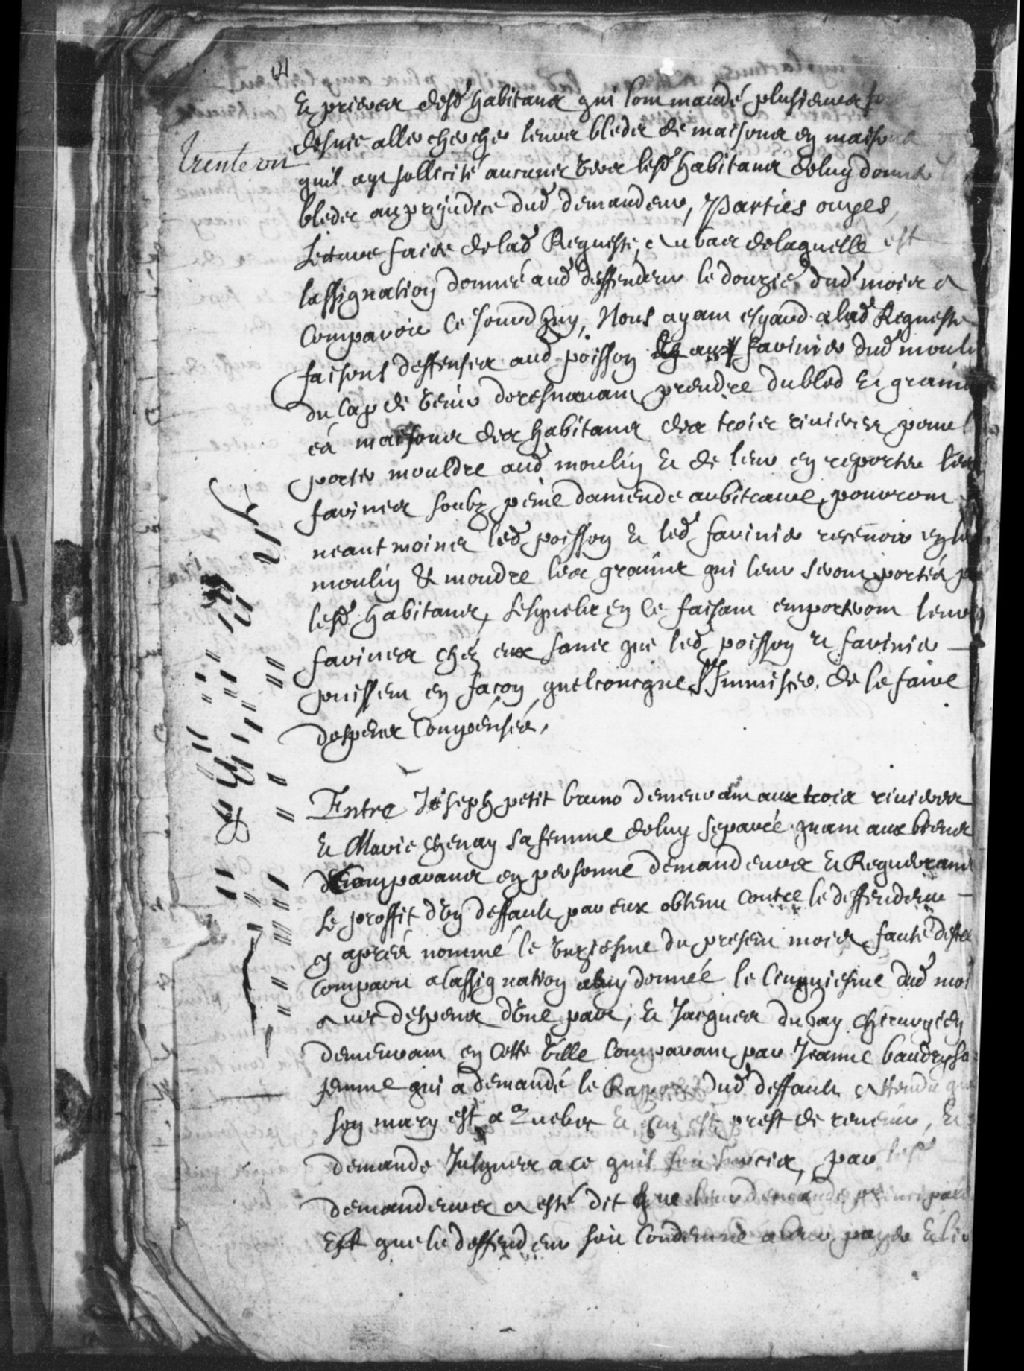 Trente un
Et prieres desd habitans qui lont mandé plusieurs fo
desuie aller chercher leurs bleds de maisons en maisons
quil aye sollicité aucunes vers lesd habitans deluy donner
bleds au prejudice dud demandeur, Parties ouyes,
Lecture faite de lad Requeste, au bas delaquelle est
lassignation donnée aud deffendeur le douzie dud mois a
Comparoir Ce Jourdhuy, Nous ayant esgard a lad Requeste
faisons deffenses aud poisson farinier dud moulin
du Cap de doresnavant prendre du bled Et grains
es maisons des habitans des trois rivieres pour l
porter mouldre aud moulin Et de leur en reporter leurs
farines soubz peine damende arbitraire, pourront
neantmoines led poisson Et led farinier recevoir en leur
moulin Et moudre les grains qui leur seront portés p
lesd habitans, Lesquels en Ce faisant emporteront leurs
farines chez eux sans que led poisson Et farinier
puissent en façon quelconcque s'Jmmiscer de le faire
despens Compensés,
Entre Joseph petit bruno demeurant aux trois rivieres
Et Marie Chenay sa femme deluy separée quant aux biens
Comparans en personne demandeurs Et Requerans
Le proffit d'un deffault par eux obtenu contre le deffendeur
cy apres nommé le unziesme du present mois, faute destre
Comparu a lassignation aluy donnée le Cinquiesme dud mois
avec despens d'une part, Et Jacques dubay Chirurgien
demeurant en Cette ville Comparant par Jeanne baudry sa
femme qui a demandé le Rapport dud deffault, attendu que
son mary est a Quebec Et qui est prest de revenir, Et
demande Jusques a ce quil soit surcis, par lesd
demandeurs a esté dit que leur demande principale
Est que le deffendeur soit Condemné a leur payer